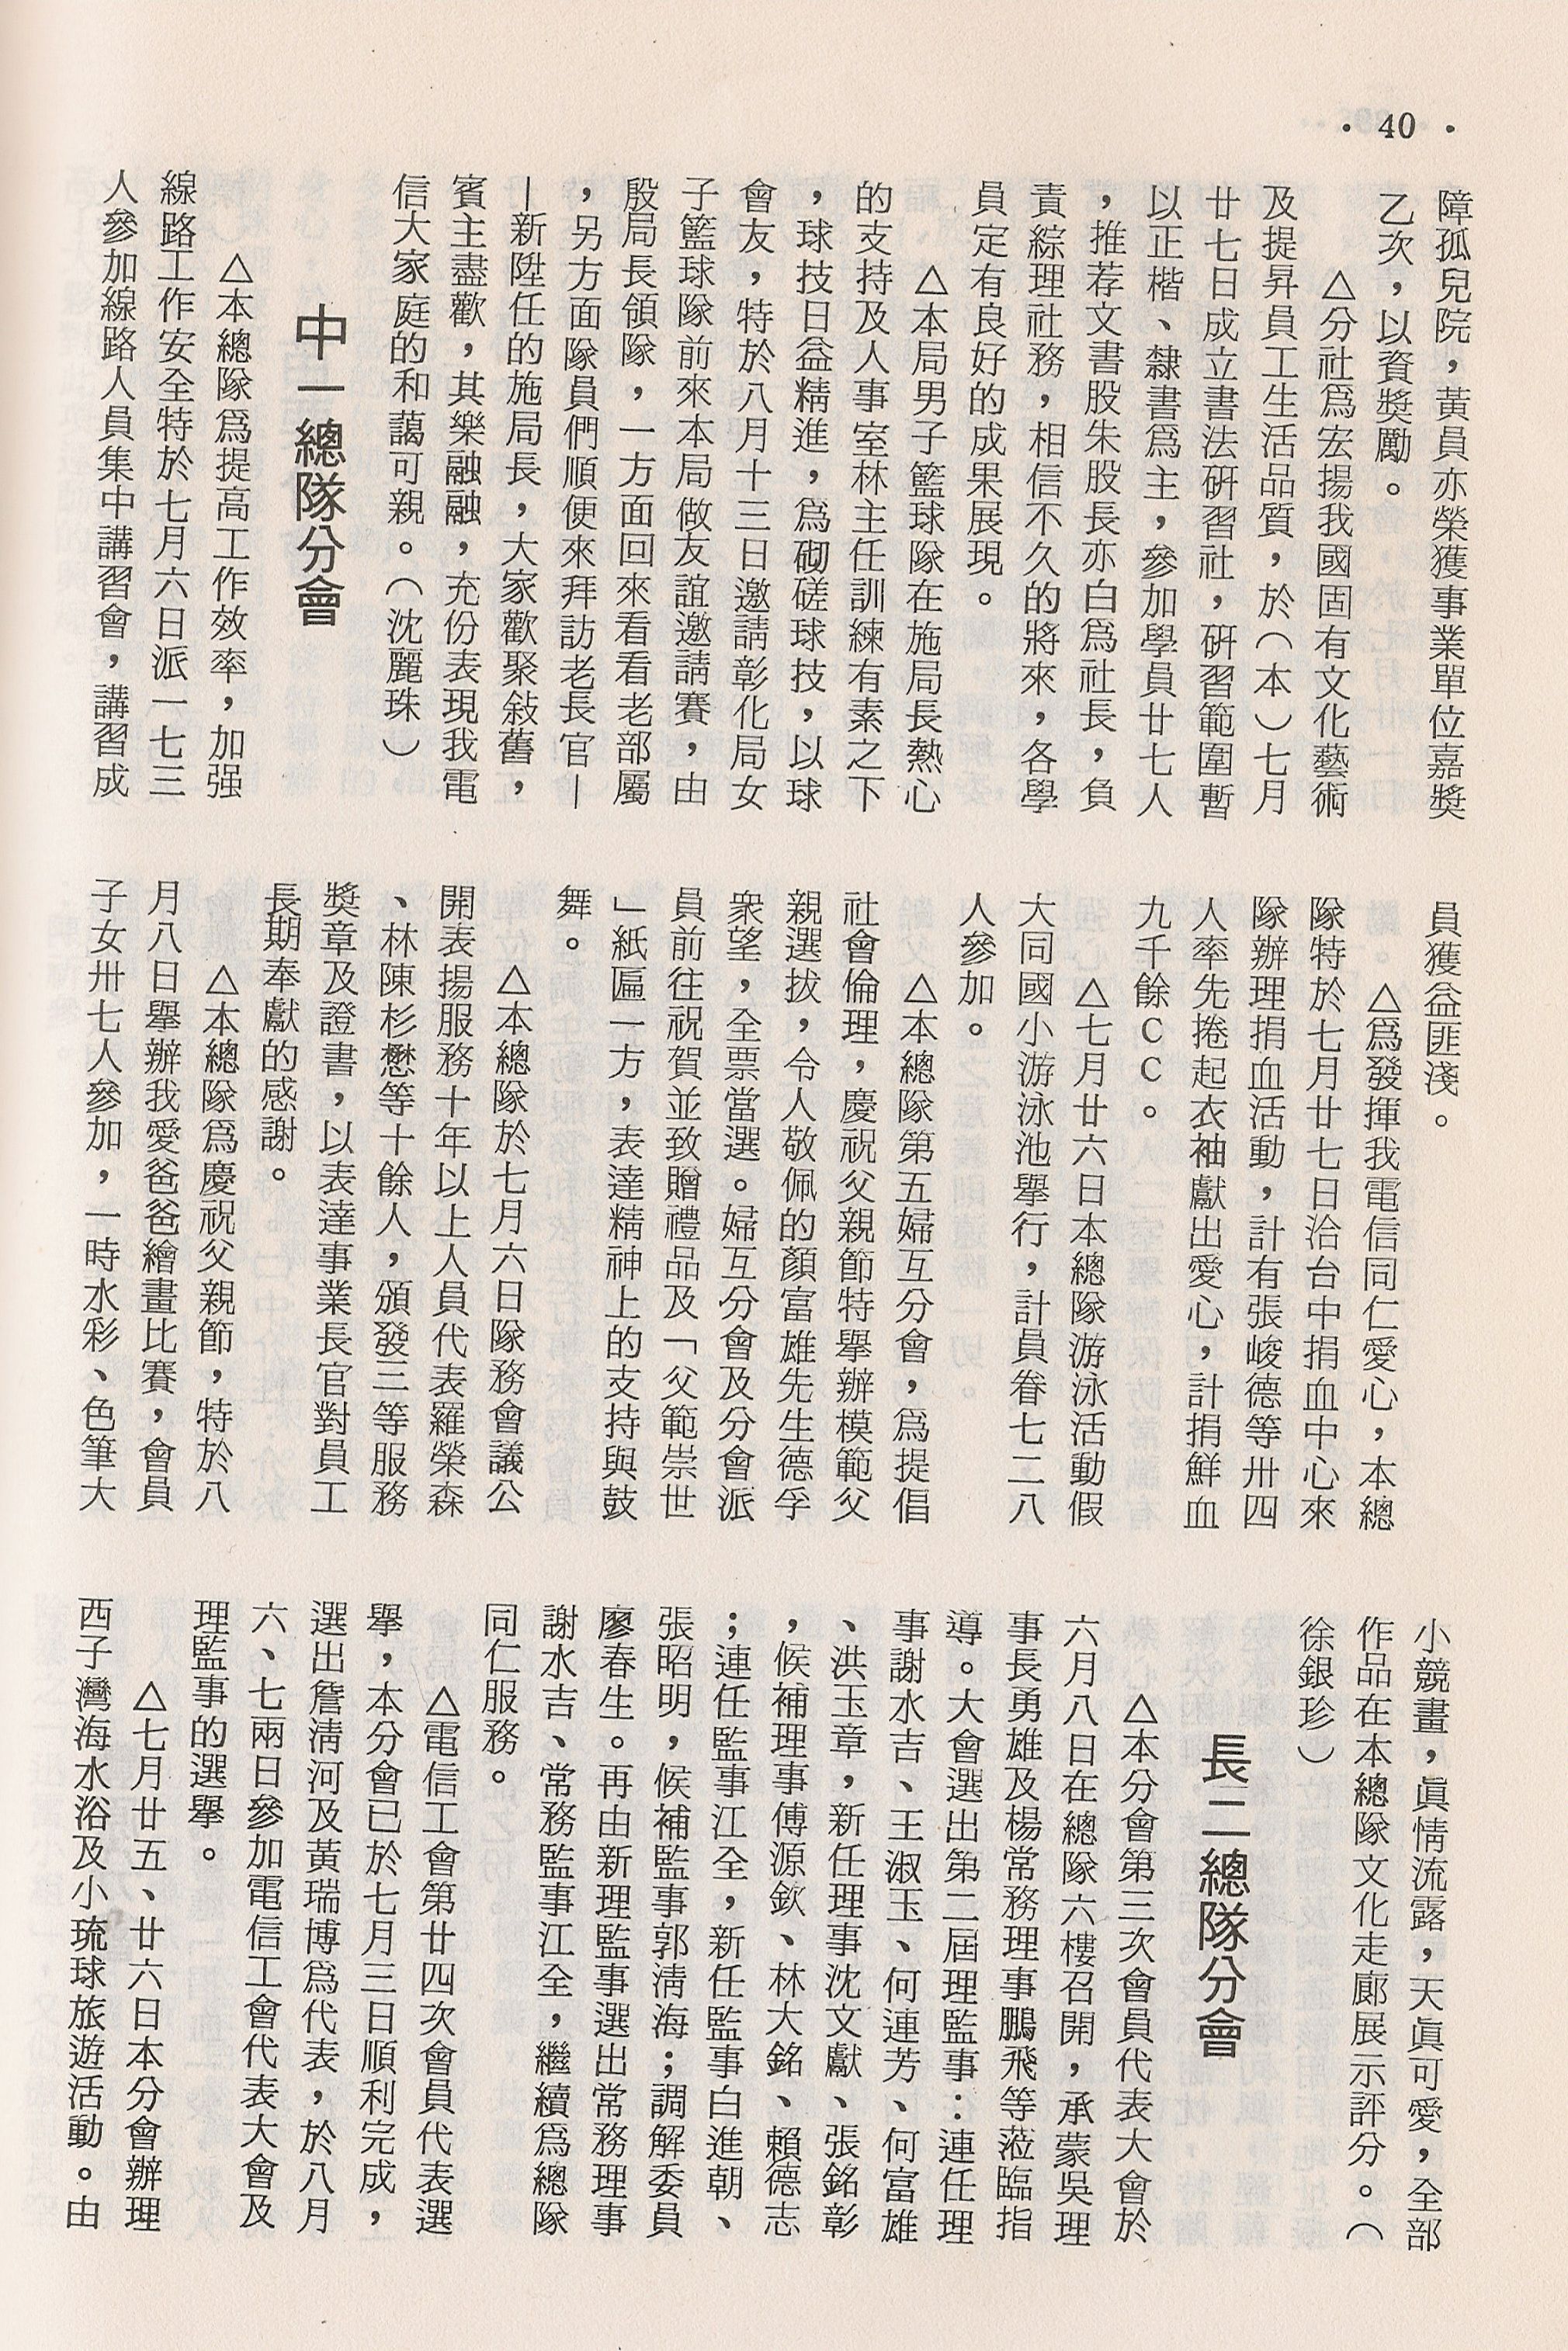 • 40 •
障孤兒院，黃員亦榮獲事業單位嘉獎
乙次，以資獎勵。
△分社爲宏揚我國固有文化藝術
及提昇員工生活品質，於（本）七月
廿七日成立書法硏習社，硏習範圍暫
以正楷、隸書爲主，參加學員廿七人
，推荐文書股朱股長亦白爲社長，負
責綜理社務，相信不久的將來，各學
員定有良好的成果展現。
△本局男子籃球隊在施局長熱心
的支持及人事室林主任訓練有素之下
，球技日益精進，爲砌磋球技，以球
會友，特於八月十三日邀請彰化局女
子籃球隊前來本局做友誼邀請賽，由
殷局長領隊，一方面回來看看老部屬
，另方面隊員們順便來拜訪老長官—
—新陞任的施局長，大家歡聚敍舊，
賓主盡歡，其樂融融，充份表現我電
信大家庭的和藹可親。（沈麗珠）
中一總隊分會
△本總隊爲提高工作效率，加强
線路工作安全特於七月六日派一七三
人參加線路人員集中講習會，講習成
員獲益匪淺。
△爲發揮我電信同仁愛心，本總
隊特於七月廿七日洽台中捐血中心來
隊辦理捐血活動，計有張峻德等卅四
人率先捲起衣袖獻出愛心，計捐鮮血
九千餘ＣＣ。
△七月廿六日本總隊游泳活動假
大同國小游泳池舉行，計員眷七二八
人參加。
△本總隊第五婦互分會，爲提倡
社會倫理，慶祝父親節特舉辦模範父
親選拔，令人敬佩的顏富雄先生德孚
衆望，全票當選。婦互分會及分會派
員前往祝賀並致贈禮品及「父範崇世
」紙匾一方，表達精神上的支持與鼓
舞。
△本總隊於七月六日隊務會議公
開表揚服務十年以上人員代表羅榮森
、林陳杉懋等十餘人，頒發三等服務
獎章及證書，以表達事業長官對員工
長期奉獻的感謝。
△本總隊爲慶祝父親節，特於八
月八日舉辦我愛爸爸繪畫比賽，會員
子女卅七人參加，一時水彩、色筆大
小競畫，眞情流露，天眞可愛，全部
作品在本總隊文化走廊展示評分。（
徐銀珍）
長二總隊分會
△本分會第三次會員代表大會於
六月八日在總隊六樓召開，承蒙吳理
事長勇雄及楊常務理事鵬飛等蒞臨指
導。大會選出第二屆理監事：連任理
事謝水吉、王淑玉、何連芳、何富雄
、洪玉章，新任理事沈文獻、張銘彰
，候補理事傅源欽、林大銘、賴德志
；連任監事江全，新任監事白進朝、
張昭明，候補監事郭淸海；調解委員
廖春生。再由新理監事選出常務理事
謝水吉、常務監事江全，繼續爲總隊
同仁服務。
△電信工會第廿四次會員代表選
舉，本分會已於七月三日順利完成，
選出詹淸河及黃瑞博爲代表，於八月
六、七兩日參加電信工會代表大會及
理監事的選舉。
△七月廿五、廿六日本分會辦理
西子灣海水浴及小琉球旅遊活動。由